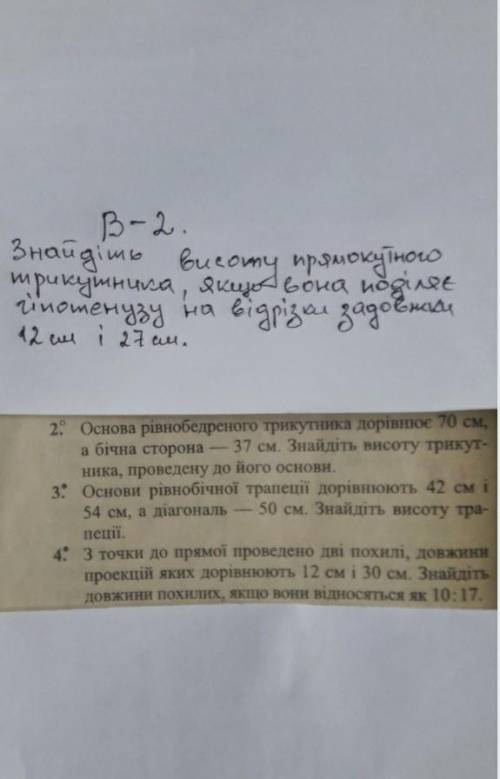 В-2.
Знайдіть висоту прямокутного
трикутника, якщо вона поділяє
гіпотенузу на відрізки задовжки
12 см і 27 см.
2.° Основа рівнобедреного трикутника дорівнює 70 см,
а бічна сторона — 37 см. Знайдіть висоту трикут-
ника, проведену до його основи.
3.• Основи рівнобічної трапеції дорівнюють 42 см і
54 см, а діагональ — 50 см. Знайдіть висоту тра-
пеції.
4.• З точки до прямої проведено дві похилі, довжини
проекцій яких дорівнюють 12 см і 30 см. Знайдіть
довжини похилих, якщо вони відносяться як 10:17.